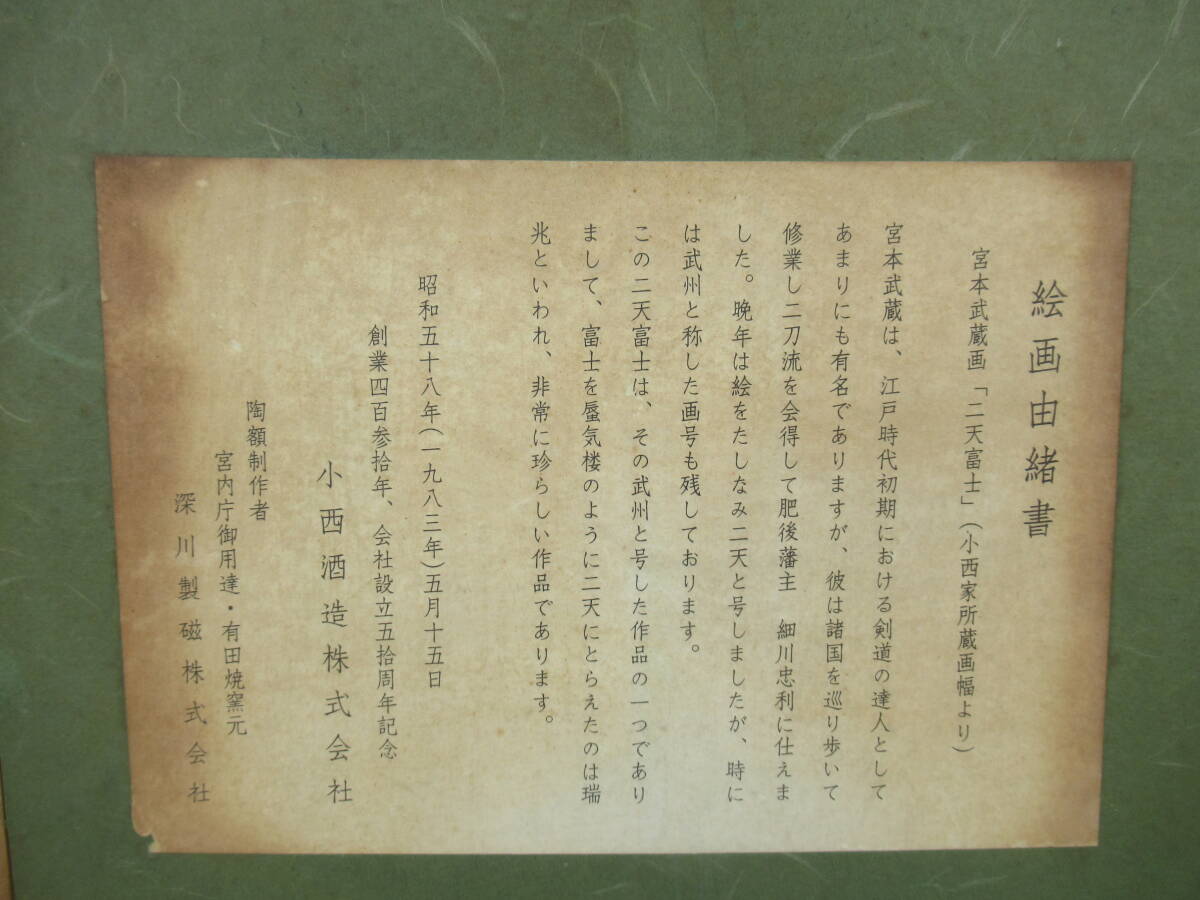 絵画由緒書
宮本武蔵画「二天富士」(小西家所蔵画幅より)
宮本武蔵は、江戸時代初期における剣道の達人として
あまりにも有名でありますが、彼は諸国を巡り歩いて
修業し二刀流を会得して肥後藩主　細川忠利に仕えま
した。晩年は絵をたしなみ二天と号しましたが、時に
は武州と称した画号も残しております。
この二天富士は、その武州と号した作品の一つであり
まして、富士を蜃気楼のように二天にとらえたのは瑞
兆といわれ、非常に珍らしい作品であります。
昭和五十八年(一九八三年)五月十五日
創業四百参拾年、会社設立五拾周年記念
小西酒造株式会社
陶額制作者
宮内庁御用達・有田焼窯元
深川製磁株式会社